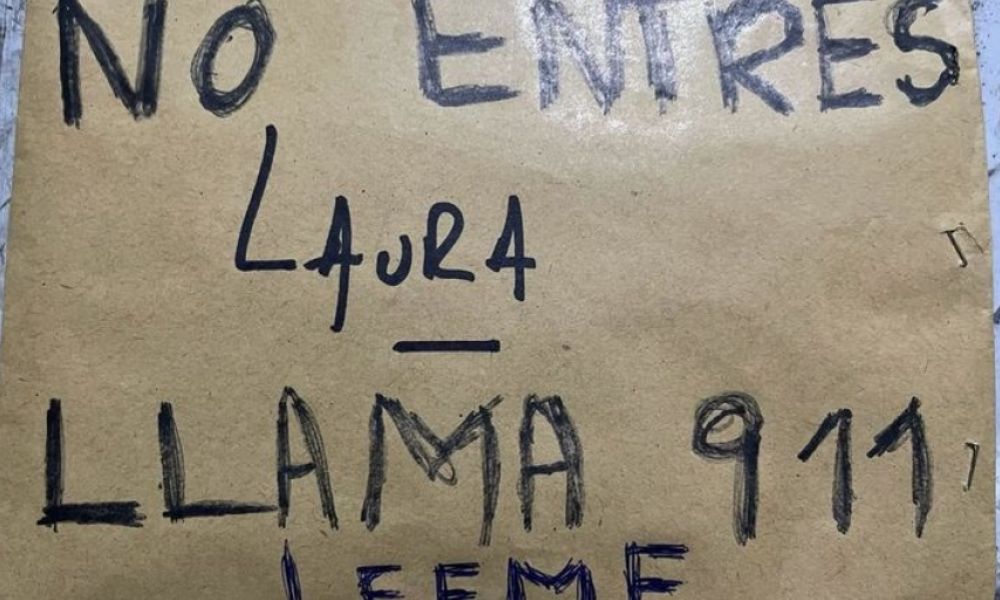 NO ENTRES
LAURA
LLAMA 911
LEEME